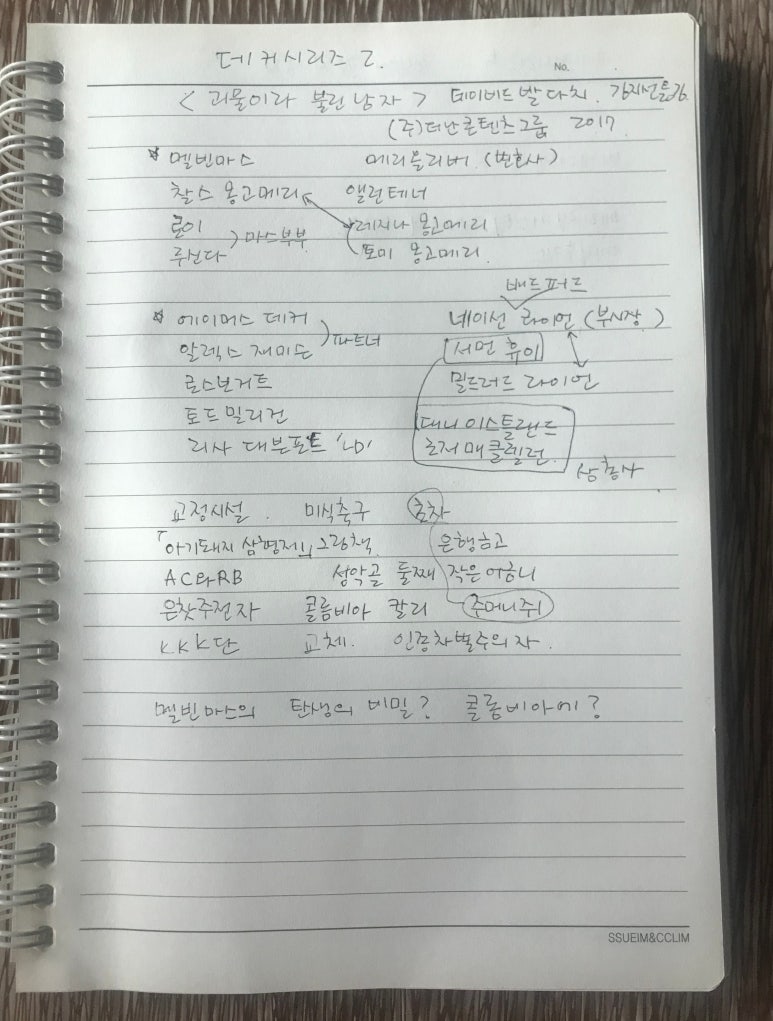 데커시리즈 2.
No.
<괴물이라 불린 남자> 데이비드 발다치. 김지선 옮김.
(주)더난콘텐츠그룹 2017
멜빈마스 메리올리버. (변호사)
찰스 몽고메리 앨런테너
로이 레지나 몽고메리
루신다 >마스부부 토미 몽고메리.
배드퍼드
에이머스 데커 네이선 라이언 (부시장)
알렉스 재미슨 >파트너 서먼 휴이
로스보거트 밀드러드 라이언
토드밀리건 대니 이스틀랜드
리사 대븐포트 '나' 로저 매클렐런.
삼총사
교정시설. 미식축구 촘차
「아기돼지 삼형제」의 그림책. 은행금고
AC와RB 성악골 둘째 작은어금니
은찻주전자 콜롬비아 칼리 주머니쥐
KKK단 교체. 인종차별주의자.
멜빈마스의 탄생의 비밀? 콜롬비아에?
SSUEIM&CCLIM